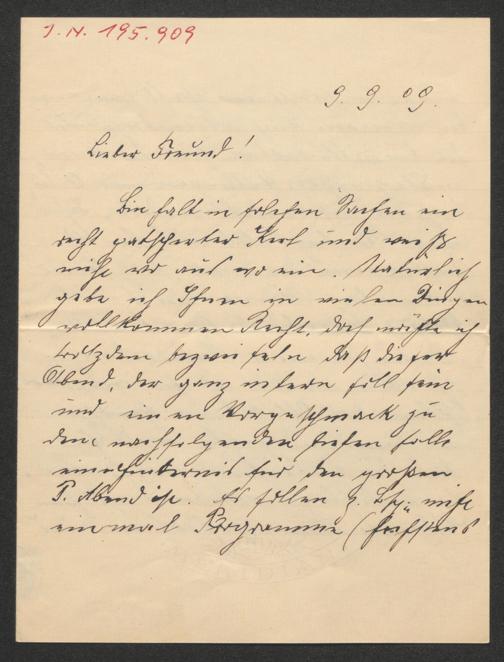 I. N. 195.909
9. 9. 09.
Lieber Freund!
Bin halt in solchen Sachen ein
recht patscherter Kerl und weiß
nicht wo aus wo ein. Natürlich
gebe ich Ihnen in vielen Dingen
vollkommen Recht, doch möchte ich
trotzdem bezweifeln daß dieser
Abend, der ganz intern sein soll
und einen Vorgeschmack zu
den nachfolgenden bieten solle
ein Hindernis für den großen
P. Abend ist. Es sollen z. Bsp. nicht
einmal Programme (höchstens